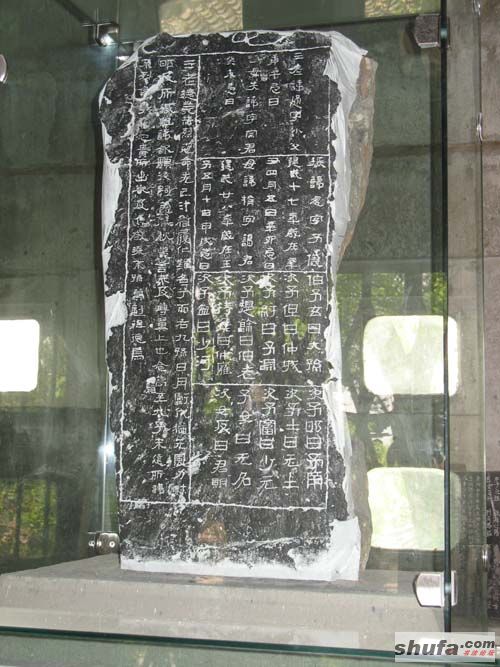 三老諱通字小父
庚午忌日
祖母失諱字宗君
癸未忌日
掾諱忽字子儀
建武十七年歲在辛
丑四月五日辛卯忌日
母諱捐字謁君
建武廿八年歲在壬
子五月十日甲戌忌日
伯子玄曰大孫
次子但曰仲城
次子紆曰子淵
次子提餘曰伯老
次子持侯曰仲雍
次子盆曰少河
次子邯曰子南
次子士曰元士
次子富曰少元
子女曰无名
次女反曰君明
三老德業赫烈克命先己汁稽履仁難名兮而右九孫日月虧代猶元風力射
邯及所識祖諱欽顯後嗣蓋春秋義言不及尊翼上也念高祖至九子未遠所諱
不列言事觸忌貴所出嚴及焦敬曉末孫冀副祖德焉
shufa.com